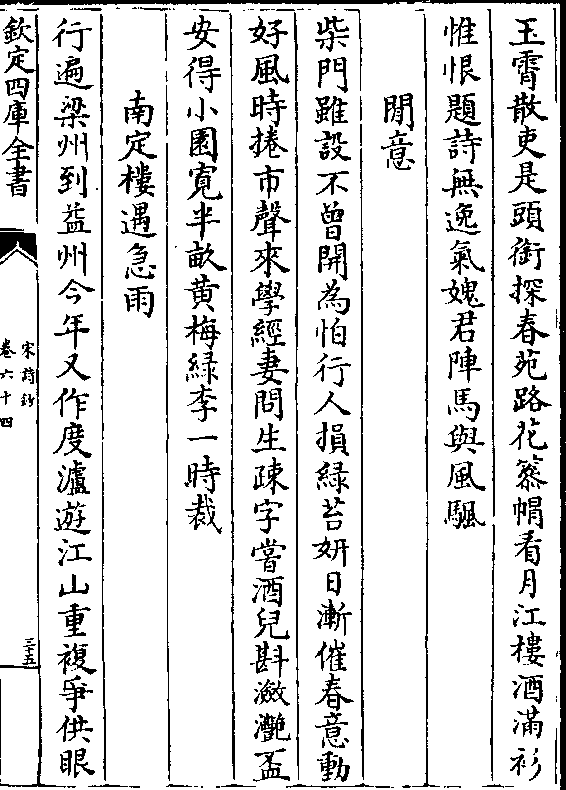 玉霄散吏是頭銜探春苑路花簽帽看月江樓酒滿衫
惟恨題詩無逸氣媿君陣馬與風颿
閒意
柴門雖設不曾開為怕行人損綠苔妍日漸催春意動
好風時捲市聲來學經妻問生疎字嘗酒兒斟瀲灩盃
安得小園寛半畝黄梅緑李一時裁
南定樓遇急雨
行遍梁州到益州今年又作度瀘遊江山重複爭供眼
欽定四庫全書
宋詩鈔
卷六十四
三十五